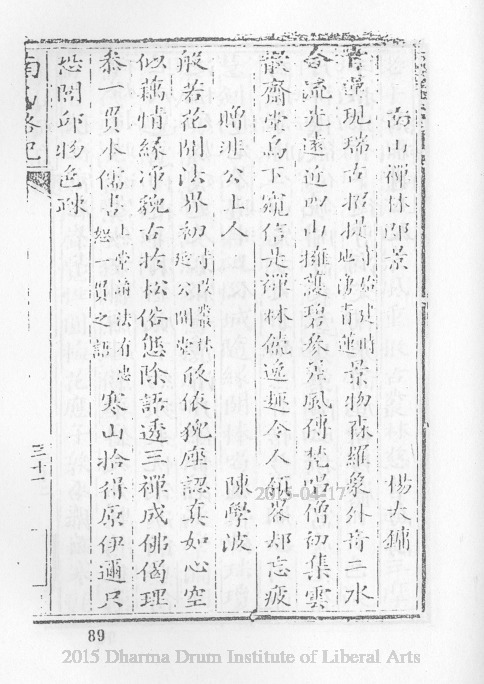 南山禪林即景 楊大鏞
青蓮現瑞古招提寺始建時地湧青蓮景物森羅象外奇二水
合流光遠近四山擁護碧參差風傳梵唄僧初集雲
散齋堂鳥下窺信是禪林饒逸趣令人領畧却忘疲
贈非公上人 陳學波
般若花開法界初寺改叢林非公開堂皈依猊座認真如心空
似藕情緣淨貌古於松俗態除語透三禪成佛偈理
泰一貫本儒書上堂說法有一貫之語寒山拾得原伊邇只
恐閭邱物色疎
南山略記
三十一
2015-04-17
89
2015 Dharma Drum Institute of Liberal Arts